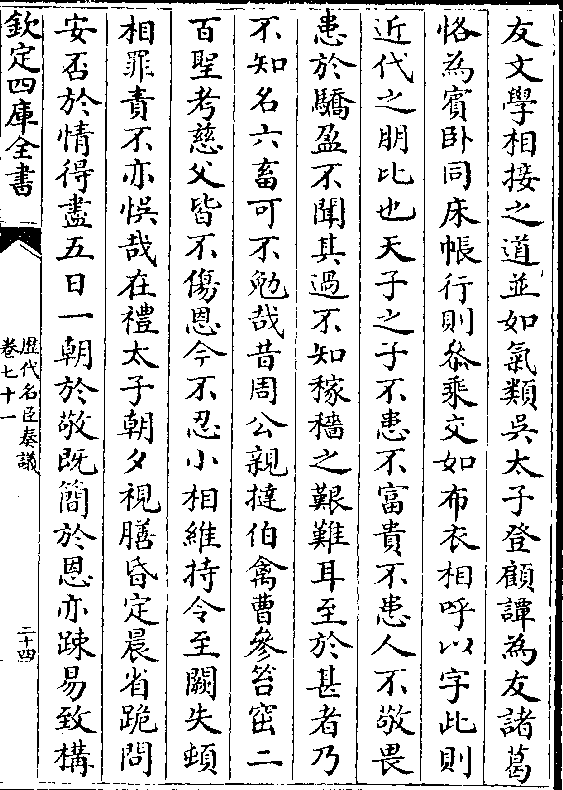 友文學相接之道並如氣類吳太子登顧譚為友諸葛
恪為賓卧同床帳行則叅乘交如布衣相呼以字此則
近代之明比也天子之子不患不富貴不患人不敬畏
患於驕盈不聞其過不知稼穡之艱難耳至於甚者乃
不知名六畜可不勉哉昔周公親撻伯禽曹參笞窋二
百聖考慈父皆不傷恩今不忍小相維持令至闕失頓
相罪責不亦悞哉在禮太子朝夕視膳昏定晨省跪問
安否於情得盡五日一朝於敬既簡於恩亦踈易致構
欽定四庫全書
歷代名臣奏議
卷七十一
二十四